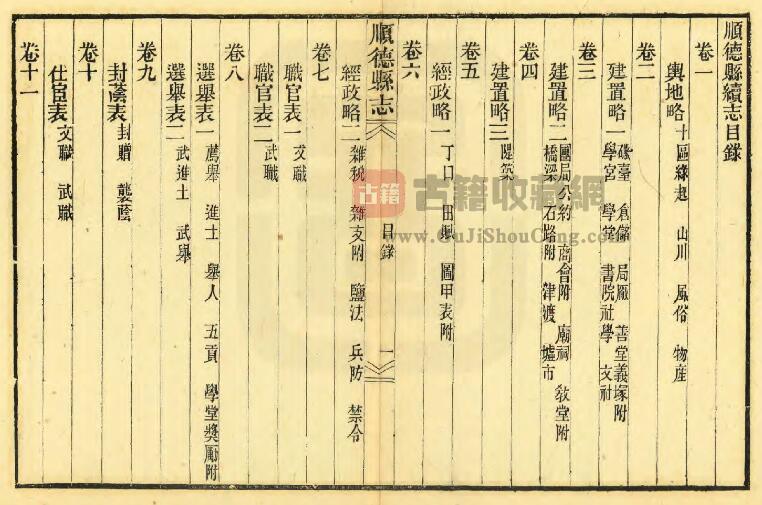 順德縣續志目錄
卷一
輿地略 十區緣起 山川 風俗 物產
卷二
建置略一 礮臺 倉儲 局廠 善堂義塚附
學宮 學堂 書院社學 文社
卷三
建置略二 團局公約 商會附 廟祠 敎堂附
橋梁 石路附 津渡 墟市
卷四
建置略三 隄築
卷五
經政略一 丁口 田賦 圖甲表附
卷六
順德縣志
目錄
一
經政略二 雜稅 雜支附 鹽法 兵防 禁令
卷七
職官表一 文職
職官表二 武職
卷八
選舉表一 薦舉 進士 舉人 五貢 學堂獎勵附
選舉表二 武進士 武舉
卷九
封蔭表 封贈 襲蔭
卷十
仕宦表 文職 武職
卷十一
古籍
古籍收藏網
www.GuJiShouCang.com